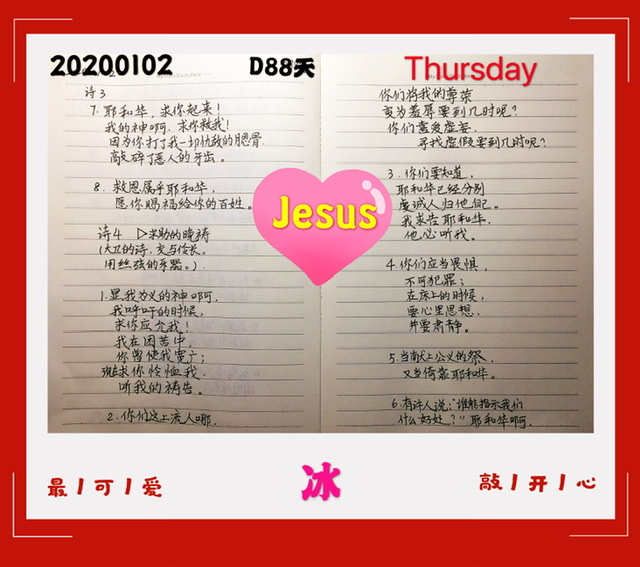 20200102
D88天
Thursday
诗3
7. 耶和华，求你起来！
我的神啊，求你救我！
因为你打了我一切仇敌的腮骨
敲碎了恶人的牙齿。
8. 救恩属乎耶和华，
愿你赐福给你的百姓。
诗4 ▷求助的晚祷
（大卫的诗，交与伶长。
用丝弦的乐器。）
1. 显我为义的神啊，
我呼吁的时候，
求你应允我！
我在困苦中，
你曾使我宽广；
现在求你怜恤我，
听我的祷告。
2. 你们这上流人哪，
你们将我的尊荣
变为羞辱要到几时呢？
你们喜爱虚妄，
寻找虚假要到几时呢？
3. 你们要知道，
耶和华已经分别
虔诚人归他自己。
我求告耶和华，
他必听我。
4. 你们应当畏惧，
不可犯罪；
在床上的时候，
要心里思想，
并要肃静。
5. 当献上公义的祭，
又当倚靠耶和华。
6. 有许人说：“谁能指示我们
什么好处？”耶和华啊，
Jesus
最1可1爱
冰
敲1开1心